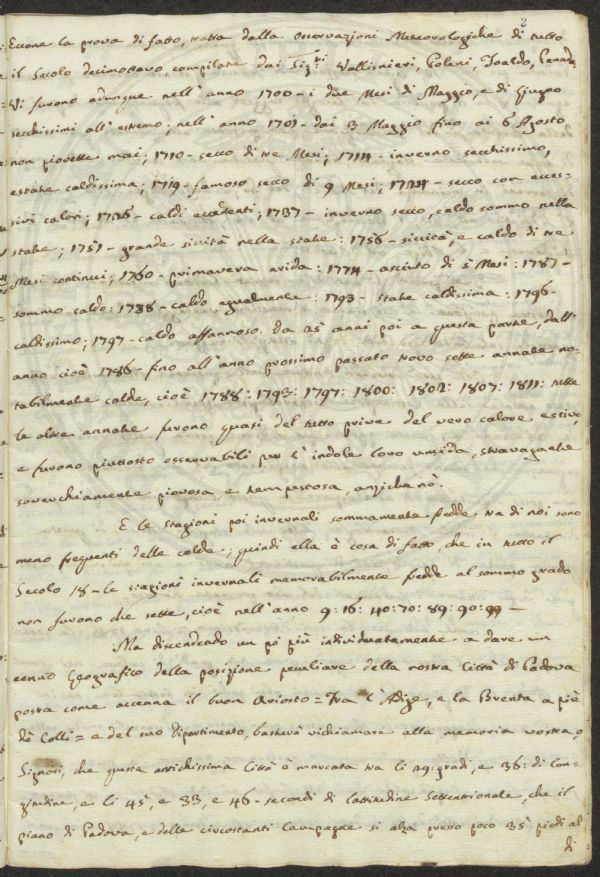 2
Eccone la prova di fatto, tratta dalle Osservazioni Meteorologiche di tutto
il Secolo decimottavo, compilate dai Sig:ri Vallisnieri, Poleni, Toaldo,
Vi furono adunque nell'anno 1700 - i due Mesi di Maggio, e di Giugno
secchissimi all'estremo; nell'anno 1701 - dai 3 Maggio fino ai 6 Agosto
non piovette mai; 1710 - secco di tre Mesi; 1714 - inverno secchissimo,
estate caldissima; 1719 - famoso secco di 9 Mesi; 1724 - secco con ecces-
sivi calori; 1726 - caldi eccedenti; 1737 - inverno secco, caldo sommo nella
state; 1751 - grande siccità nella state: 1756 - siccità, e caldo di tre
Mesi continui; 1760 - primavera arida: 1774 - asciuto di 5 Mesi: 1787 -
sommo caldo: 1788 - caldo egualmente: 1793 - state caldissima: 1796 -
caldissimo; 1797 - caldo affannoso. Da 25 annai poi a questa parte, dall'
anno cioè 1786 - fino all'anno prossimo passato trovo sette annate no-
tabilmente calde, cioè 1788: 1793: 1797: 1800: 1802: 1807: 1811: tutte
le altre annate furono quasi del tutto prive del vero calore estivo,
e furono piuttosto osservabili per l'indole loro umida, stravagante
soverchiamente piovosa, e tempestosa, anzichè nò.
E le stagioni poi invernali sommamente fredde tra di noi sono
meno frequenti delle calde; quindi ella è cosa di fatto, che in tutto il
Secolo 18 - le stagioni invernali memorabilmente fredde al sommo grado
non furono che sette, cioè nell'anno 9: 16: 40: 70: 89: 90: 99 -
Ma discendendo un pò più individuatamente a dare un
cenno Geografico della posizione peculiare della nostra Città di Padova
posta come accenna il buon Ariosto = Tra l'Adige, e la Brenta a piè
dè Colli = e del suo Dipartimento, basterà richiamare alla memoria vostra, o
Signori, che questa antichissima Città è marcata tra li 29: gradi, e 36: di lon-
gitudine, e li 45, e 33, e 46 - secondi di lattitudine Settentrionale, che il
piano di Padova, e delle circostanti Campagne si alza presso poco 35 piedi al
di